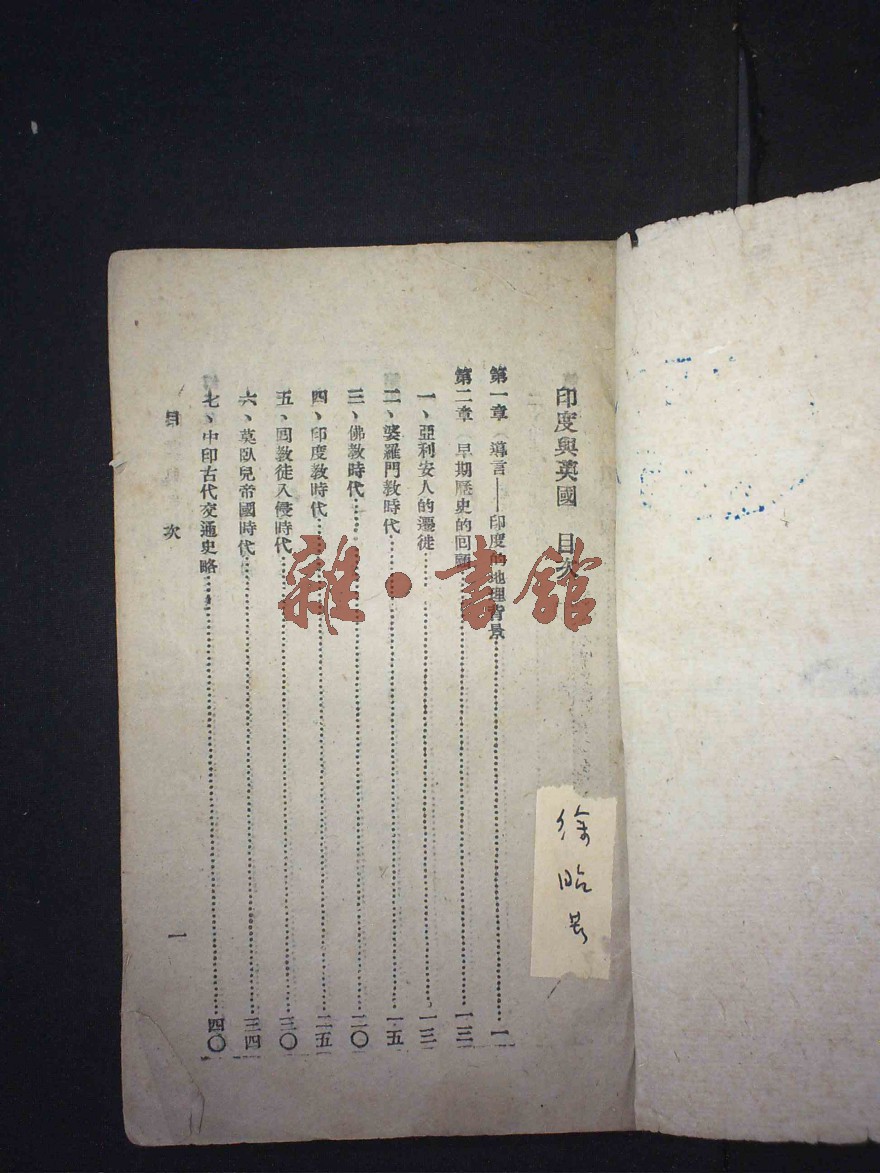 印度與英國 目次
第一章 導言——印度的地理背景……一
第二章 早期歷史的回顧……一三
一、亞利安人的遷徙……一三
二、婆羅門教時代……一五
三、佛教時代……二〇
四、印度教時代……二五
五、回教徒入侵時代……三〇
六、莫臥兒帝國時代……三四
七、中印古代交通史略……四〇
目 次
一
雜·書館
徐